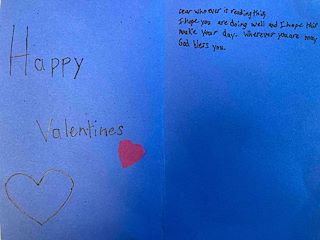 Happy
Valentines
Dear who ever is reading this,
I hope you are doing well and I hope this
make your day. Wherever you are may
God bless you.